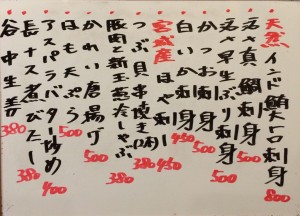 天然インド鮪トロ刺身 800
活〆真鯛刺身 500
活〆早生ぶり刺身 500
白いか刺身
かつお刺身 450
宮城産ほや刺し 450
つぶ貝串焼き 380
豚肉と新玉葱蒸しゃぶ 380
かれい唐揚げ 500
はも天ぷら 500
アスパラバター炒め 400
長ナス煮びたし 380
谷中生姜 380